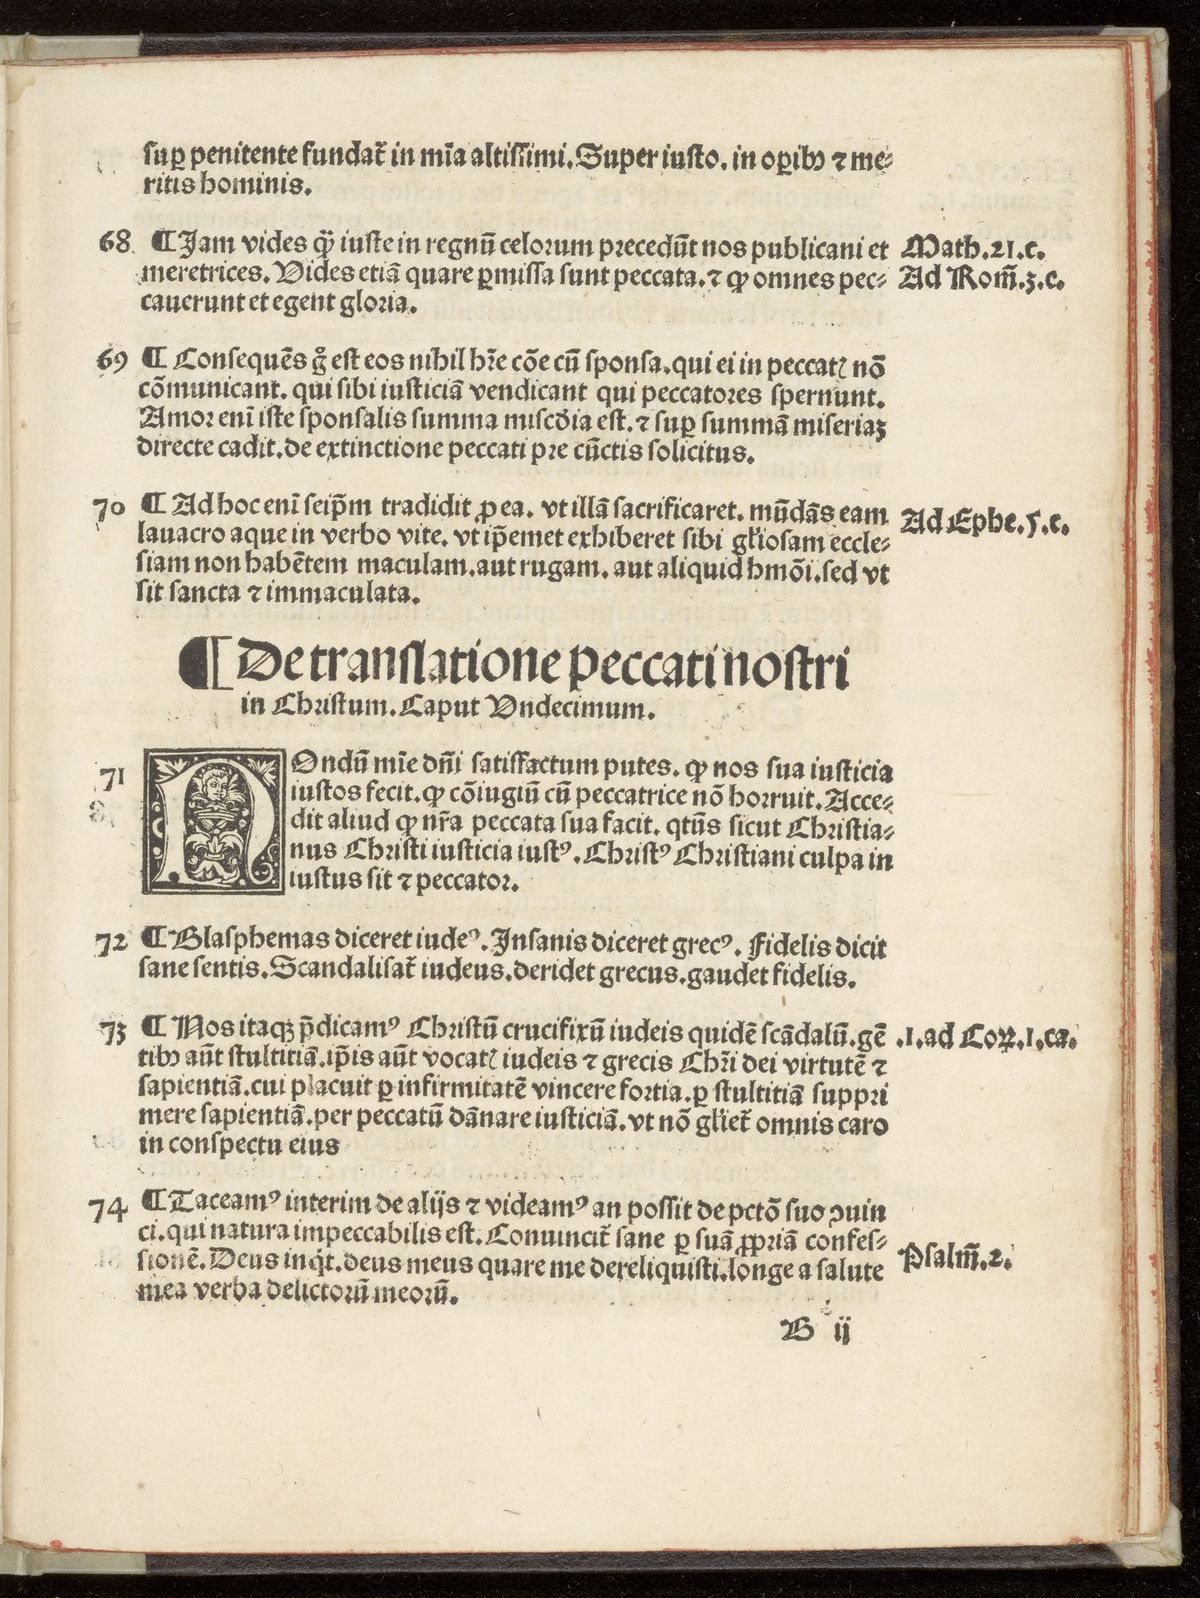 suꝑ penitente fundat᷑ in mīa altissimi. Super iusto. in oꝑibꝫ ⁊ me⸗
ritis hominis.
68 ¶ Jam vides ꝙ̈ iuste in regnū celorum precedūt nos publicani et Math. 21. c.
meretrices. Vides etiā quare ꝑmissa sunt peccata. ⁊ ꝙ omnes pec⸗ Ad Rom̄. 3. c.
cauerunt et egent gloria.
69 ¶ Consequēs g̊ est eos nihil hr̄e cōe cū sponsa. qui ei in peccatꝭ nō
cōmunicant. qui sibi iusticiā vendicant qui peccatores spernunt.
Amor eni̅ iste sponsalis summa misc̄dia est. ⁊ suꝑ summā miseriaꝫ
directe cadit. de extinctione peccati pre cūctis solicitus.
70 ¶ Ad hoc eni̅ seip̄m tradidit ꝓ ea. vt illā sacrificaret. mūdās eam Ad Ephe. 5. c.
lauacro aque in verbo vite. vt ip̄emet exhiberet sibi gl̄iosam eccle⸗
siam non habētem maculam. aut rugam. aut aliquid hmōi. sed vt
sit sancta ⁊ immaculata.
¶ De translatione peccati nostri
in Christum. Caput Vndecimum.
71 NOndū mīe dn̄i satisfactum putes. ꝙ nos sua iusticia
iustos fecit. ꝙ cōiugiū cū peccatrice nō horruit. Acce⸗
dit aliud ꝙ nr̄a peccata sua facit. qtūs sicut Christia⸗
nus Christi iusticia iustꝰ. Christꝰ Christiani culpa in
iustus sit ⁊ peccator.
72 ¶ Blasphemas diceret iudeꝰ. Insanis diceret grecꝰ. Fidelis dicit
sane sentis. Scandalisat᷑ iudeus. deridet grecus. gaudet fidelis.
73 ¶ Nos itaqꝫ p̄dicamꝰ Christū crucifixū iudeis quidē scādalū. gē .1. ad Coꝝ. 1. ca.
tibꝫ aūt stultitiā. ip̄is aūt vocatꝭ iudeis ⁊ grecis Chr̄i dei virtutē ⁊
sapientiā. cui placuit ꝑ infirmitatē vincere fortia. ꝑ stultitiā suppri
mere sapientiā. per peccatū dānare iusticiā. vt nō gl̄iet᷑ omnis caro
in conspectu eius
74 ¶ Taceamꝰ interim de alijs ⁊ videamꝰ an possit de pctō suo ꝯuin
ci. qui natura impeccabilis est. Conuincit᷑ sane ꝑ suā ꝓpriā confes⸗
sionē. Deus inqͥt. deus meus quare me dereliquisti. longe a salute Psalm̄. 2.
mea verba delictorū meorū.
B ij